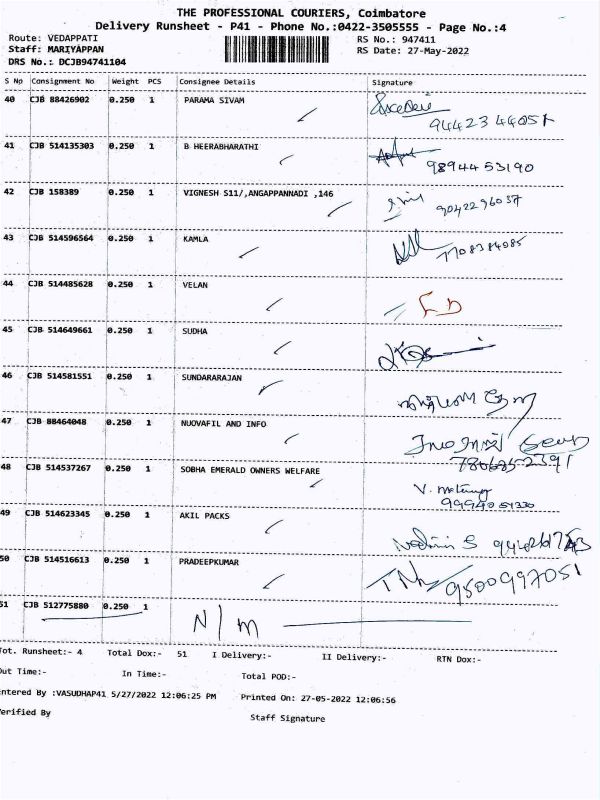 THE PROFESSIONAL COURIERS, Coimbatore
Delivery Runsheet - P41 - Phone No.:0422-3505555 - Page No.:4
Route: VEDAPPATI
RS No.: 947411
Staff: MARIYAPPAN
RS Date: 27-May-2022
DRS No.: DCJB94741104
S No Consignment No Weight PCS Consignee Details Signature
40 CJB 88426902 0.250 1 PARAMA SIVAM
41 CJB 514135303 0.250 1 B HEERABHARATHI
9894453190
42 CJB 158389 0.250 1 VIGNESH S11/,ANGAPPANNADI ,146
9042296037
43 CJB 514596564 0.250 1 KAMLA
7708384085
44 CJB 514485628 0.250 1 VELAN
45 CJB 514649661 0.250 1 SUDHA
46 CJB 514581551 0.250 1 SUNDARARAJAN
47 CJB 88464048 0.250 1 NUOVAFIL AND INFO
48 CJB 514537267 0.250 1 SOBHA EMERALD OWNERS WELFARE
49 CJB 514623345 0.250 1 AKIL PACKS
50 CJB 514516613 0.250 1 PRADEEPKUMAR
9500997051
51 CJB 512775880 0.250 1 N/M
Tot. Runsheet:- 4 Total Dox:- 51 I Delivery:- II Delivery:- RTN Dox:-
Out Time:- In Time:- Total POD:-
Entered By :VASUDHAP41 5/27/2022 12:06:25 PM Printed On: 27-05-2022 12:06:56
Verified By Staff Signature